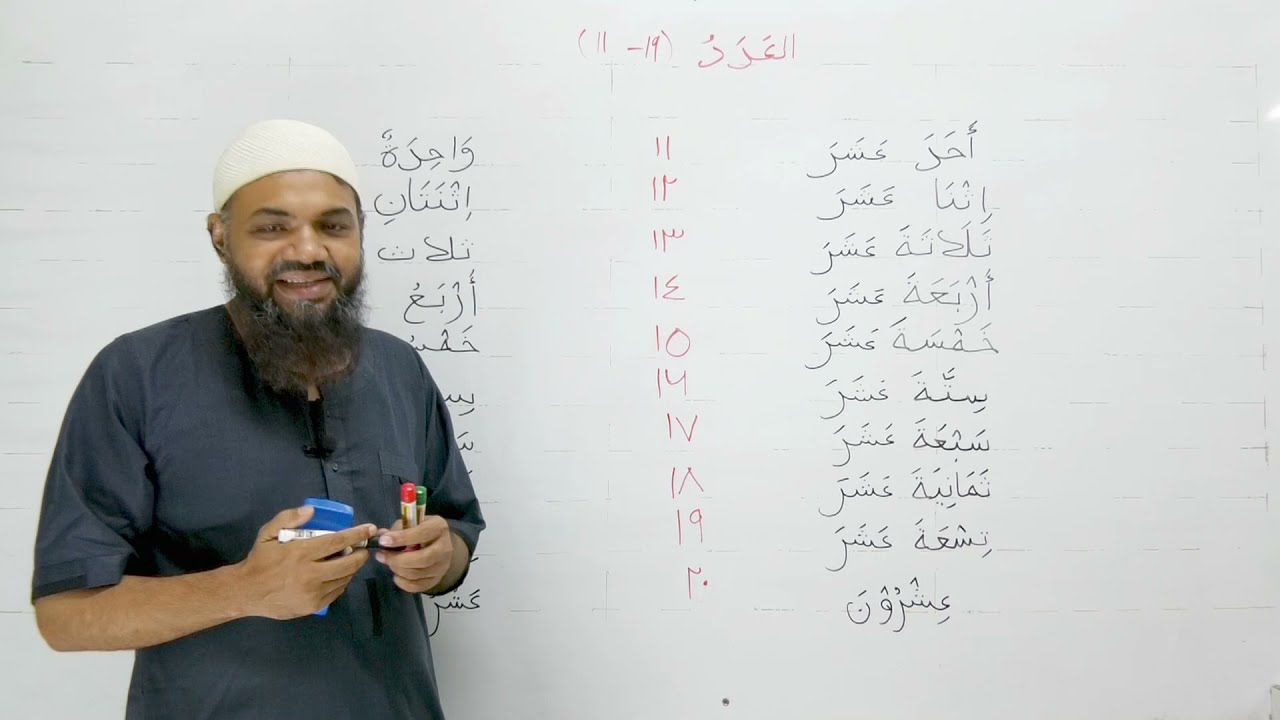 العَدَدُ (١١ - ١٩)
أَحَدَ عَشَرَ ١١ وَاحِدَةٌ
اِثْنَا عَشَرَ ١٢ اِثْنَتَانِ
ثَلَاثَةَ عَشَرَ ١٣ ثلاث
أَرْبَعَةَ عَشَرَ ١٤ أَرْبَعُ
خَمْسَةَ عَشَرَ ١٥
سِتَّةَ عَشَرَ ١٦
سَبْعَةَ عَشَرَ ١٧
ثَمَانِيَةَ عَشَرَ ١٨
تِسْعَةَ عَشَرَ ١٩
عِشْرُوْنَ ٢٠